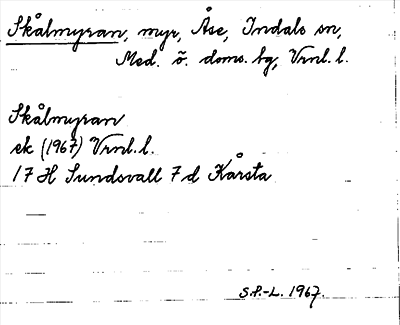 Skålmyran, myr, Åse, Indals sn,
Med. ö. doms. hg, Vrnl. l.
Skålmyran
ek (1967) Vrnl. l.
17 H Sundsvall 7 d Kårsta
S.P.-L. 1967.